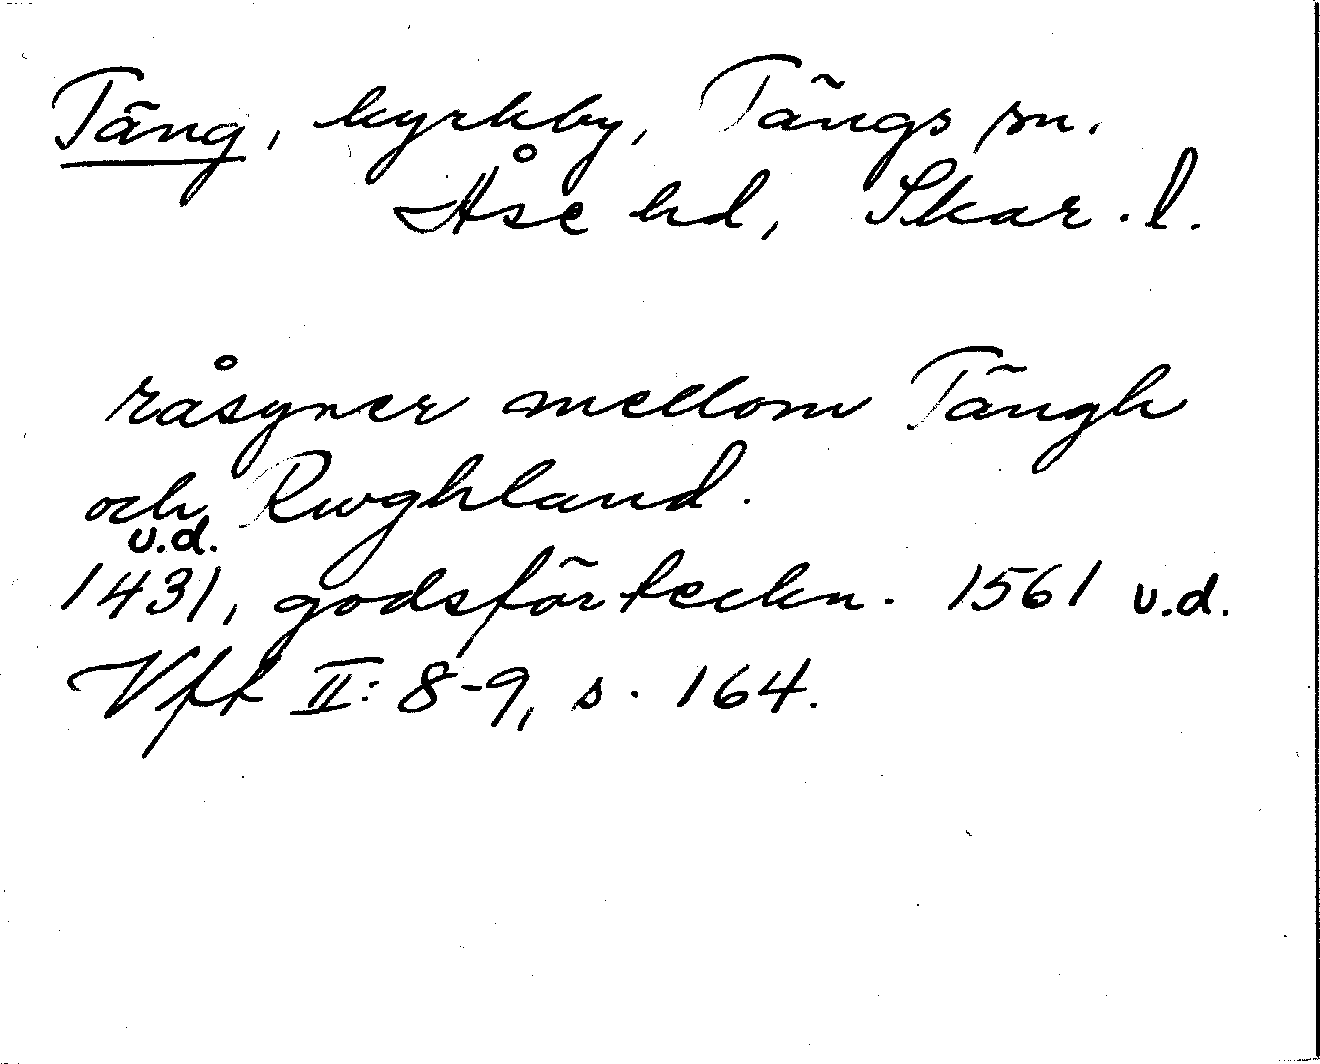 Täng, kyrkby, Tängs sn.
Åse hd, Skar. l.
råsyner mellom Tängh
och Rwghland.
u.d.
1431, godsförteckn. 1561 u.d.
Vft II: 8-9, s. 164.